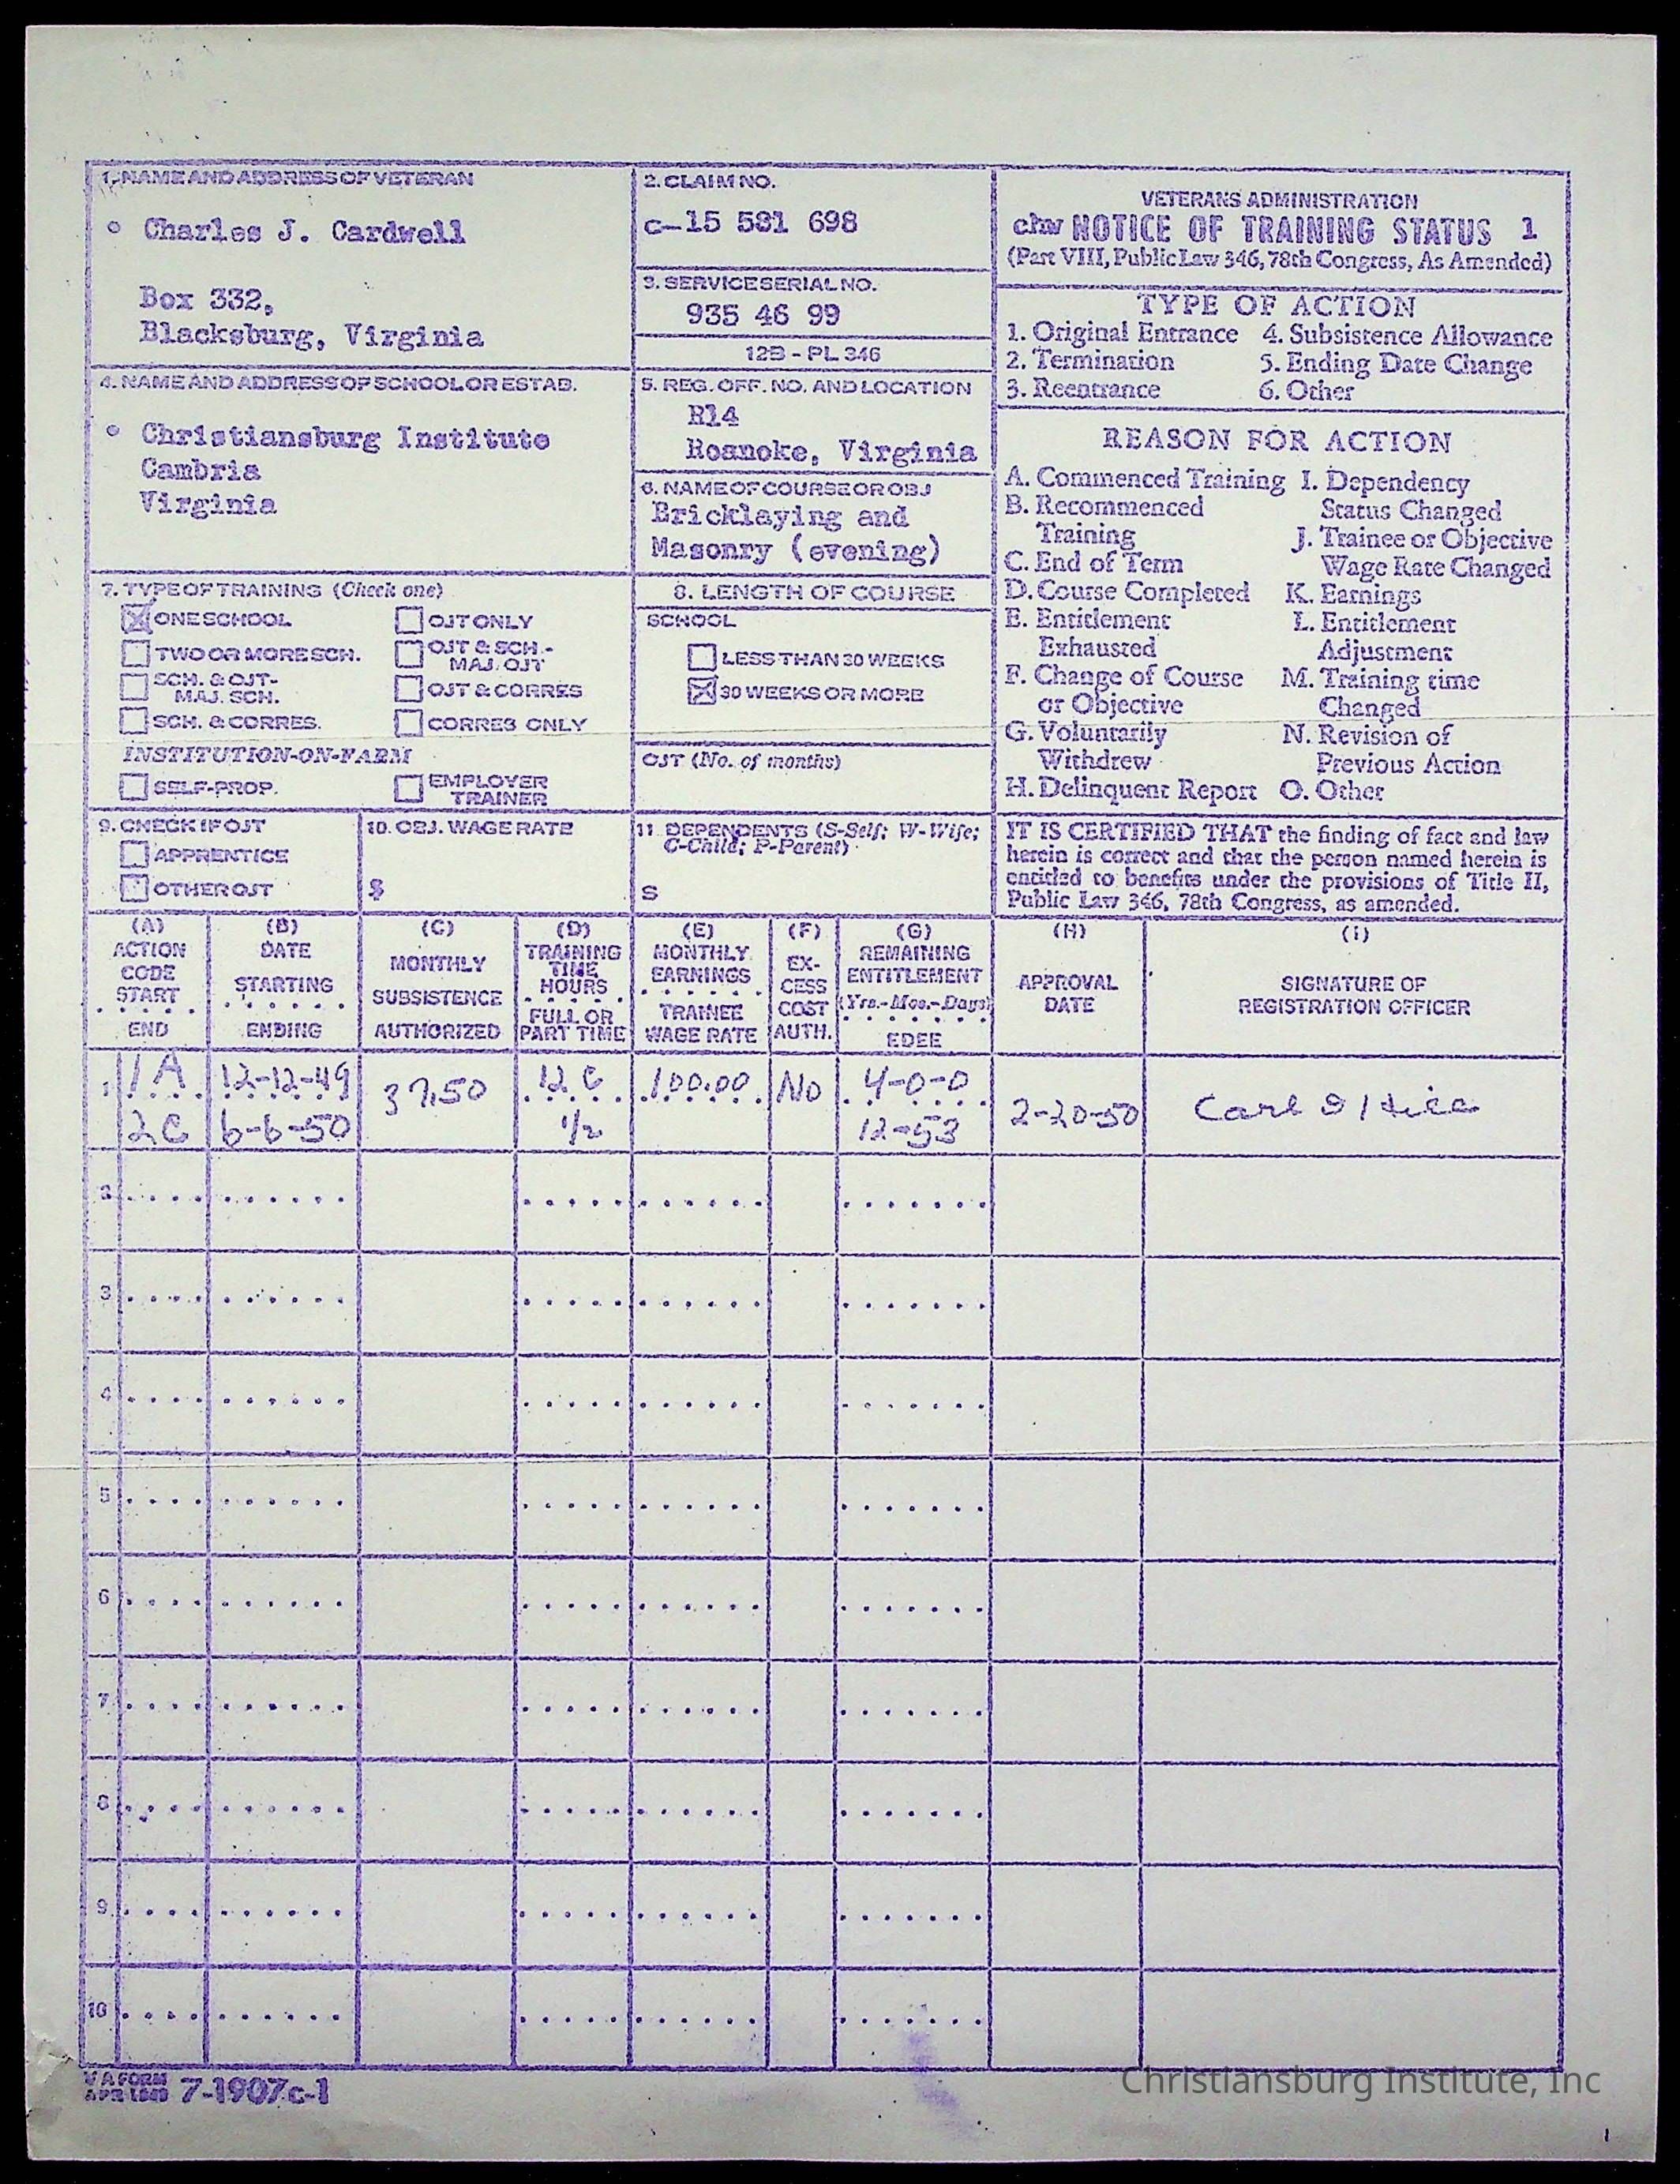 1. NAME AND ADDRESS OF VETERAN
Charles J. Cardwell
Box 332,
Blacksburg, Virginia
2. CLAIM NO.
c-15 581 698
3. SERVICE SERIAL NO.
935 46 99
12B - PL 346
4. NAME AND ADDRESS OF SCHOOL OR ESTAB.
Christiansburg Institute
Cambria
Virginia
5. REG. OFF. NO. AND LOCATION
R14
Roanoke, Virginia
6. NAME OF COURSE OR OBJ
Bricklaying and
Masonry (evening)
VETERANS ADMINISTRATION
chw NOTICE OF TRAINING STATUS 1
(Part VIII, Public Law 346, 78th Congress, As Amended)
TYPE OF ACTION
1. Original Entrance 4. Subsistence Allowance
2. Termination 5. Ending Date Change
3. Reentrance 6. Other
REASON FOR ACTION
A. Commenced Training I. Dependency
B. Recommenced Status Changed
Training J. Trainee or Objective
C. End of Term Wage Rate Changed
D. Course Completed K. Earnings
E. Entitlement L. Entitlement
Exhausted Adjustment
F. Change of Course M. Training time
or Objective Changed
G. Voluntarily N. Revision of
Withdrew Previous Action
H. Delinquent Report O. Other
7. TYPE OF TRAINING (Check one)
ONE SCHOOL OJT ONLY
TWO OR MORE SCH. OJT & SCH.-
MAJ. OJT
SCH. & OJT-
MAJ. SCH. OJT & CORRES
SCH. & CORRES. CORRES ONLY
INSTITUTION-ON-FARM
SELF-PROP. EMPLOYER
TRAINER
8. LENGTH OF COURSE
SCHOOL
LESS THAN 30 WEEKS
30 WEEKS OR MORE
OJT (No. of months)
9. CHECK IF OJT
APPRENTICE
OTHER OJT
10. OBJ. WAGE RATE
$
11. DEPENDENTS (S-Self; W-Wife;
C-Child; P-Parent)
S
IT IS CERTIFIED THAT the finding of fact and law
herein is correct and that the person named herein is
entitled to benefits under the provisions of Title II,
Public Law 346, 78th Congress, as amended.
(A)
ACTION
CODE
START
END
(B)
DATE
STARTING
ENDING
(C)
MONTHLY
SUBSISTENCE
AUTHORIZED
(D)
TRAINING
TIME
HOURS
FULL OR
PART TIME
(E)
MONTHLY
EARNINGS
TRAINEE
WAGE RATE
(F)
EX-
CESS
COST
AUTH.
(G)
REMAINING
ENTITLEMENT
(Yrs.-Mos.-Days)
EDEE
(H)
APPROVAL
DATE
(I)
SIGNATURE OF
REGISTRATION OFFICER
1 1A 12-12-49 37.50 12 C 100.00 No 4-0-0
2C 6-6-50 1/2 12-53 2-20-50 Carl
2
3
4
5
6
7
8
9
10
VA FORM
APR 1949 7-1907c-1
Christiansburg Institute, Inc